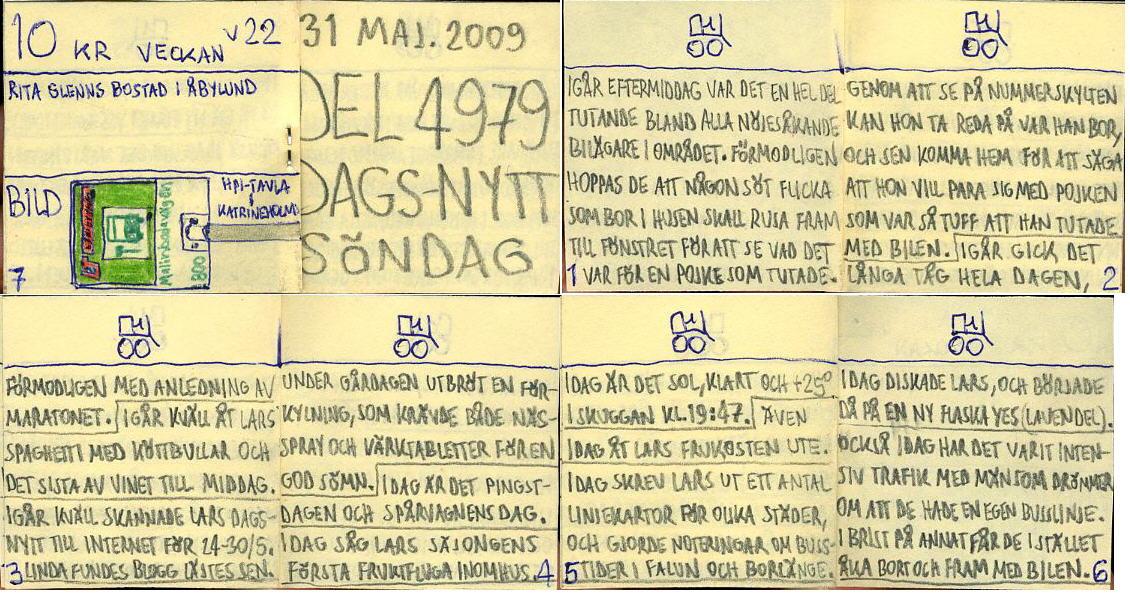 10 KR VECKAN V22
RITA GLENNS BOSTAD I ÅBYLUND
BILD
HPI-TAVLA
I
KATRINEHOLM
Malmbodavägen
800
7
31 MAJ. 2009
DEL 4979
DAGS-NYTT
SÖNDAG
IGÅR EFTERMIDDAG VAR DET EN HEL DEL
TUTANDE BLAND ALLA NÖJESÅKANDE
BILÄGARE I OMRÅDET. FÖRMODLIGEN
HOPPAS DE ATT NÅGON SÖT FLICKA
SOM BOR I HUSEN SKALL RUSA FRAM
TILL FÖNSTRET FÖR ATT SE VAD DET
1 VAR FÖR EN POJKE SOM TUTADE.
GENOM ATT SE PÅ NUMMERSKYLTEN
KAN HON TA REDA PÅ VAR HAN BOR,
OCH SEN KOMMA HEM FÖR ATT SÄGA
ATT HON VILL PARA SIG MED POJKEN
SOM VAR SÅ TUFF ATT HAN TUTADE
MED BILEN. IGÅR GICK DET
LÅNGA TÅG HELA DAGEN, 2
FÖRMODLIGEN MED ANLEDNING AV
MARATONET. IGÅR KVÄLL ÅT LARS
SPAGHETTI MED KÖTTBULLAR OCH
DET SISTA AV VINET TILL MIDDAG.
IGÅR KVÄLL SKANNADE LARS DAGS-
NYTT TILL INTERNET FÖR 24-30/5.
3 LINDA FUNDES BLOGG LÄSTES SEN.
UNDER GÅRDAGEN UTBRÖT EN FÖR-
KYLNING, SOM KRÄVDE BÅDE NÄS-
SPRAY OCH VÄRKTABLETTER FÖR EN
GOD SÖMN. IDAG ÄR DET PINGST-
DAGEN OCH SPÅRVAGNENS DAG.
IDAG SÅG LARS SÄSONGENS
FÖRSTA FRUKTFLUGA INOMHUS. 4
IDAG ÄR DET SOL, KLART OCH +25°
I SKUGGAN KL.19:47. ÄVEN
IDAG ÅT LARS FRUKOSTEN UTE.
IDAG SKREV LARS UT ETT ANTAL
LINJEKARTOR FÖR OLIKA STÄDER,
OCH GJORDE NOTERINGAR OM BUSS-
5 TIDER I FALUN OCH BORLÄNGE.
IDAG DISKADE LARS, OCH BÖRJADE
DÅ PÅ EN NY FLASKA YES (LAVENDEL).
OCKSÅ IDAG HAR DET VARIT INTEN-
SIV TRAFIK MED MÄN SOM DRÖMMER
OM ATT DE HADE EN EGEN BUSSLINJE.
I BRIST PÅ ANNAT FÅR DE ISTÄLLET
ÅKA BORT OCH FRAM MED BILEN. 6